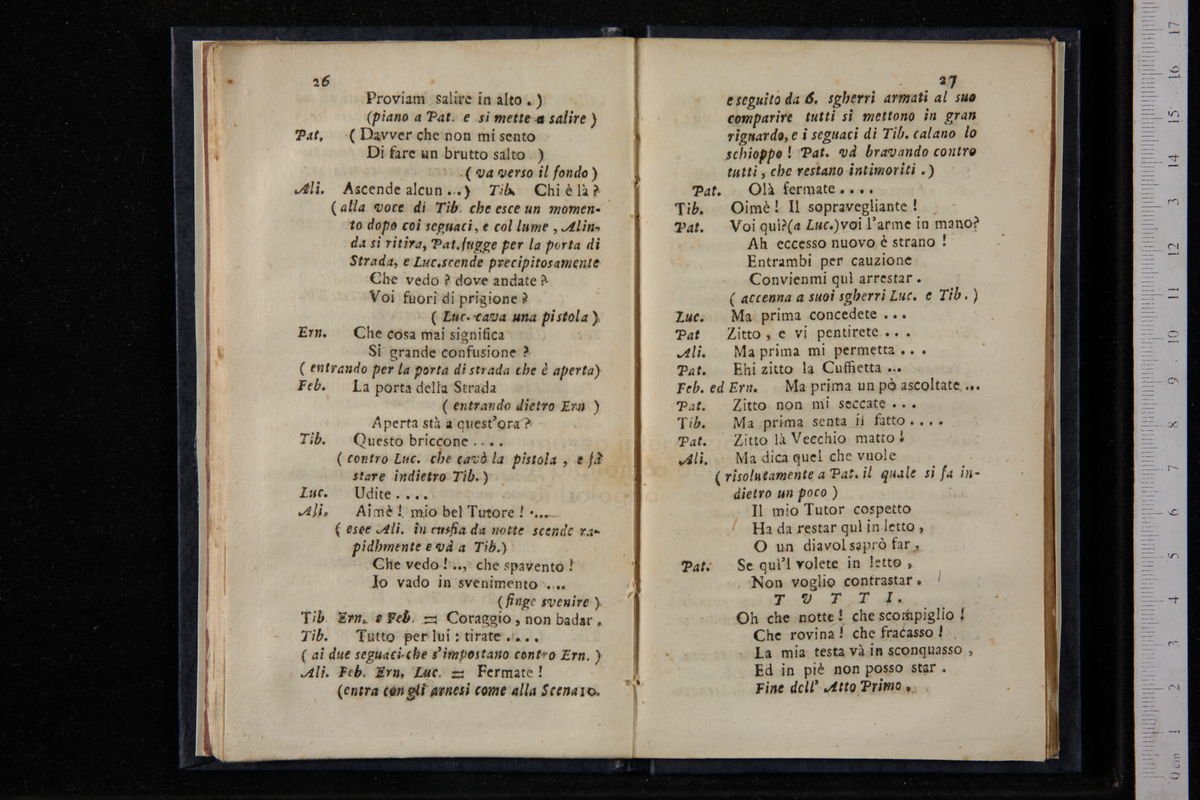 26
Proviam salire in alto . )
(piano a Pat. e si mette a salire )
Pat. ( Davver che non mi sento
Di fare un brutto salto . )
( va verso il fondo )
Ali. Ascende alcun . . ) Tib. Chi è là ?
( alla voce di Tib. che esce un momen-
to dopo coi seguaci, e col lume , Alin-
da si ritira, Pat. fugge per la porta di
Strada, e Luc. scende precipitosamente
Che vedo ? dove andate ?
Voi fuori di prigione ?
( Luc. cava una pistola )
Ern. Che cosa mai significa
Si grande confusione ?
( entrando per la porta di strada che è aperta)
Feb. La porta della Strada
( entrando dietro Ern )
Aperta stà a quest'ora ?
Tib. Questo briccone . . . .
( contro Luc. che cavò la pistola , e fà
stare indietro Tib. )
Luc. Udite . . . .
Ali. Aimè ! mio bel Tutore ! . ...
( esce Ali. in cusfia da notte scende ra-
pidhmente e và a Tib.)
Che vedo ! .., che spavento !
Io vado in svenimento ....
(finge svenire )
Tib Ern. e Feb. = Coraggio , non badar .
Tib. Tutto per lui : tirate . . . .
( ai due seguaci che s'impostano contro Ern. )
Ali. Feb. Ern. Luc. = Fermate !
(entra con gli arnesi come alla Scena 10.
27
e seguito da 6. sgherri armati al suo
comparire tutti si mettono in gran
riguardo, e i seguaci di Tib. calano lo
schioppo ! Pat. và bravando contro
tutti , che restano intimoriti . )
Pat. Olà fermate . . . .
Tib. Oimè ! Il sopravegliante !
Pat. Voi quì?(a Luc.)voi l'arme in mano?
Ah eccesso nuovo è strano !
Entrambi per cauzione
Convienmi quì arrestar .
( accenna a suoi sgherri Luc. e Tib. )
Luc. Ma prima concedete . . .
Pat Zitto , e vi pentirete . . .
Ali. Ma prima mi permetta . . .
Pat. Ehi zitto la Cuffietta ...
Feb. ed Ern. Ma prima un pò ascoltate ...
Pat. Zitto non mi seccate . . .
Tib. Ma prima senta il fatto . . . .
Pat. Zitto là Vecchio matto !
Ali. Ma dica quel che vuole
( risolutamente a Pat. il quale si fa in-
dietro un poco )
Il mio Tutor cospetto
Ha da restar quì in letto ,
O un diavol saprò far .
Pat. Se quì'l volete in letto ,
Non voglio contrastar .
T U T T I.
Oh che notte ! che scompiglio !
Che rovina ! che fracasso !
La mia testa và in sconquasso ,
Ed in piè non posso star .
Fine dell' Atto Primo .